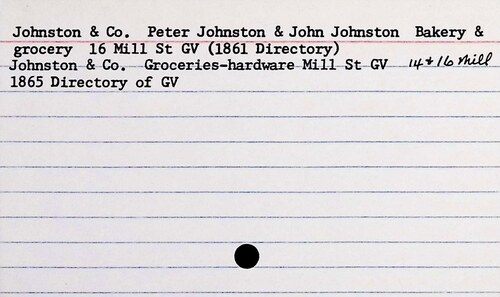 Johnston & Co. Peter Johnston & John Johnston Bakery &
grocery 16 Mill St GV (1861 Directory)
Johnston & Co. Groceries-hardware Mill St GV 14 & 16 Mill
1865 Directory of GV